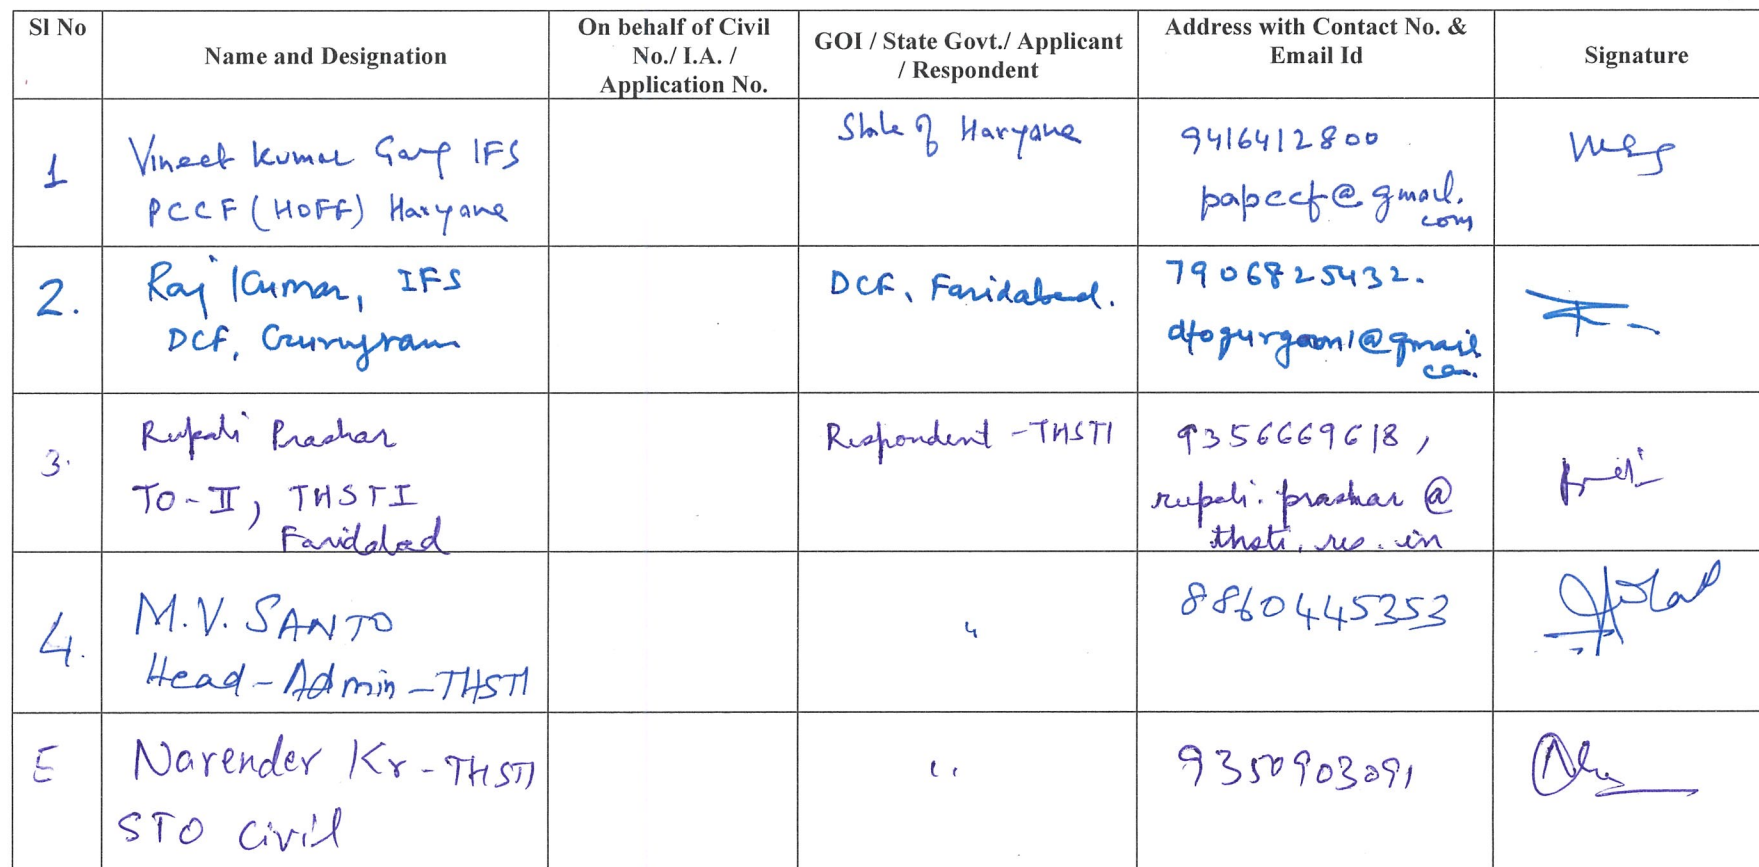 Sl No
Name and Designation
On behalf of Civil
No./ I.A. /
Application No.
GOI / State Govt./ Applicant
/ Respondent
Address with Contact No. &
Email Id
Signature
1
Vineet Kumar Garg IFS
PCCF (HOFF) Haryana
State of Haryana
9416412800
papccf@gmail.
com
2.
Raj Kumar, IFS
DCF, Gurugram
DCF, Faridabad.
7906825432.
dfogurgaon1@gmail
com.
3.
Rupali Prashar
TO-II, THSTI
Faridabad
Respondent - THSTI
9356669618,
rupali.prashar@
thsti.res.in
4.
M.V. SANTO
Head-Admin-THSTI
"
8860445353
5
Narender Kr-THSTI
STO Civil
"
9350903091